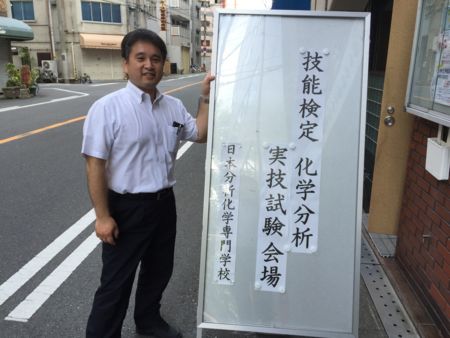 技能検定 化学分析
実技試験会場
日本分析化学専門学校